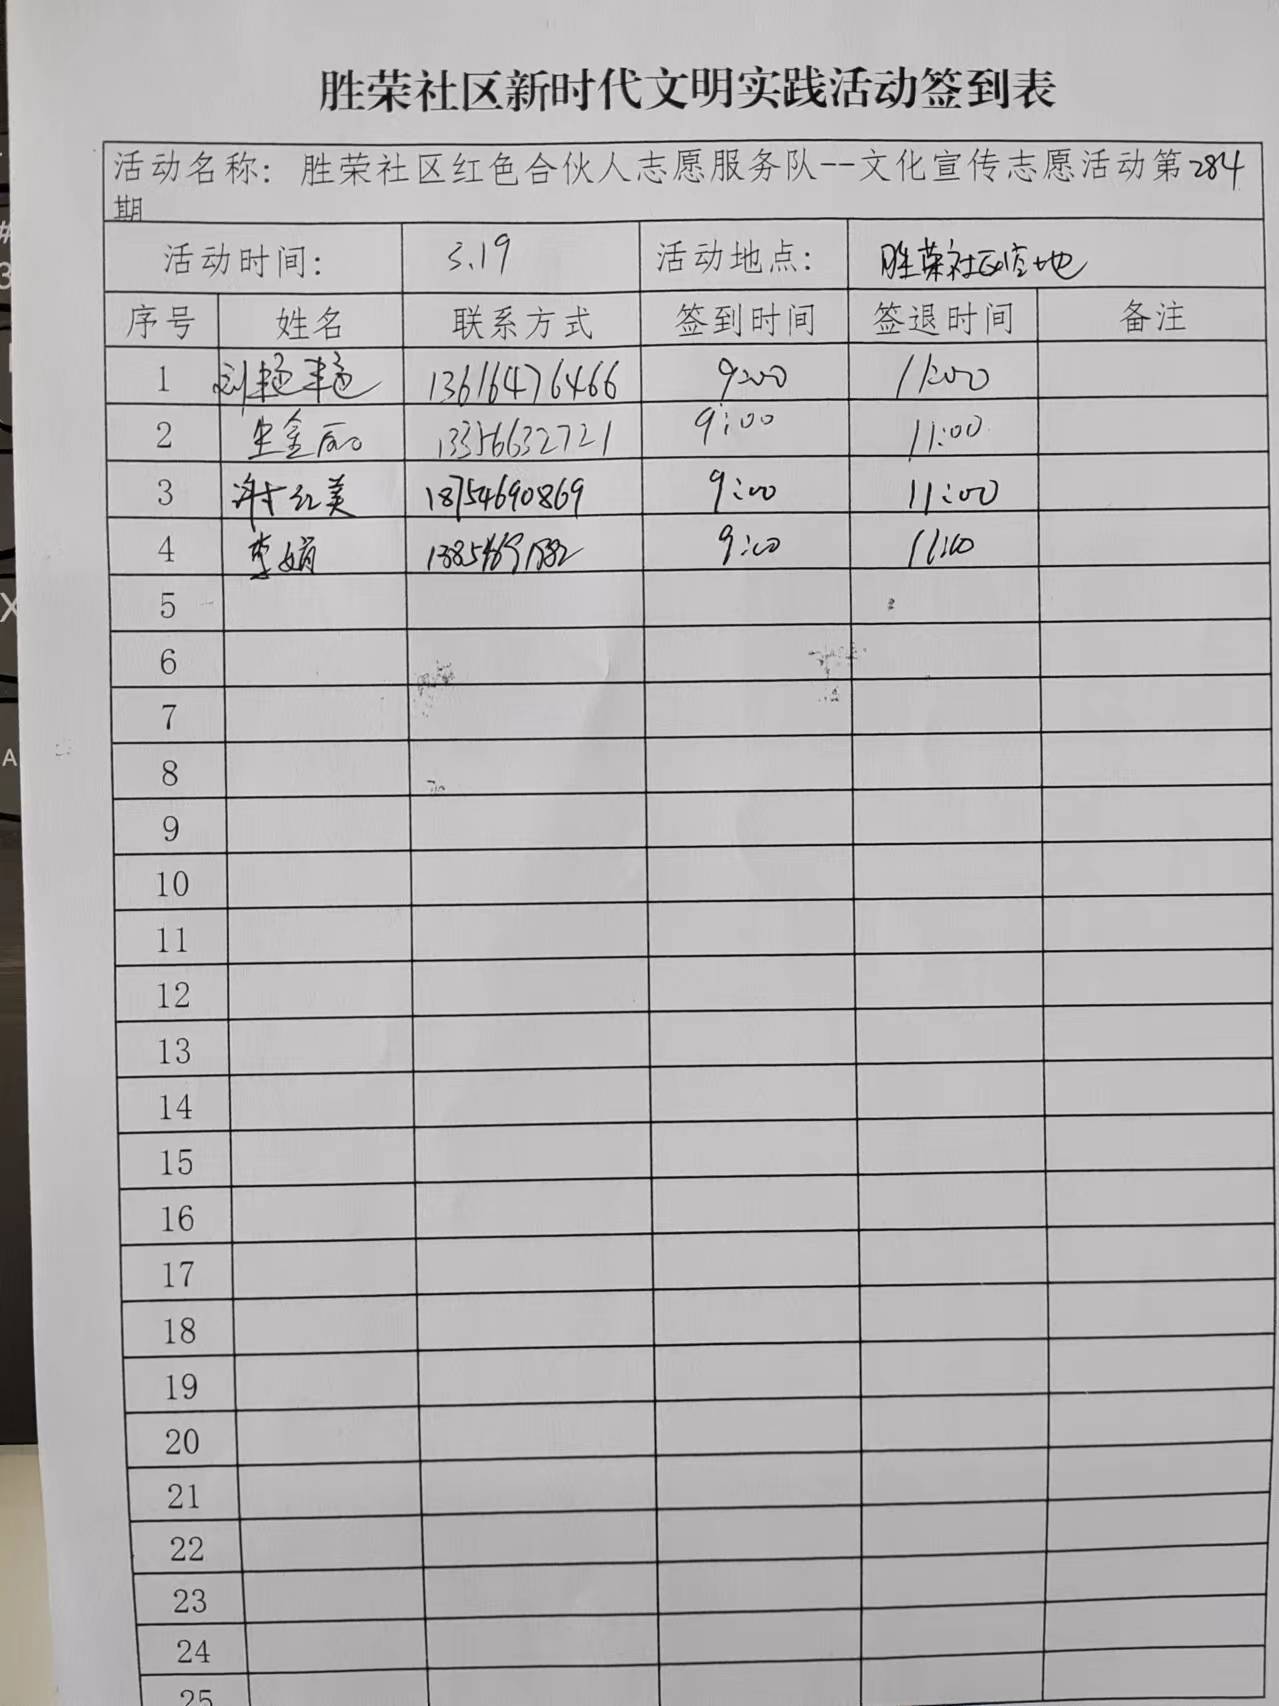 胜荣社区新时代文明实践活动签到表
活动名称：胜荣社区红色合伙人志愿服务队--文化宣传志愿活动第284
期
活动时间： 3.19 活动地点： 胜荣社区
序号 姓名 联系方式 签到时间 签退时间 备注
1 刘艳艳 13616476466 9:00 11:00
2 金丽 13356632721 9:00 11:00
3 红美 18754690869 9:00 11:00
4 李娟 9:00 11:00
5
6
7
8
9
10
11
12
13
14
15
16
17
18
19
20
21
22
23
24
25